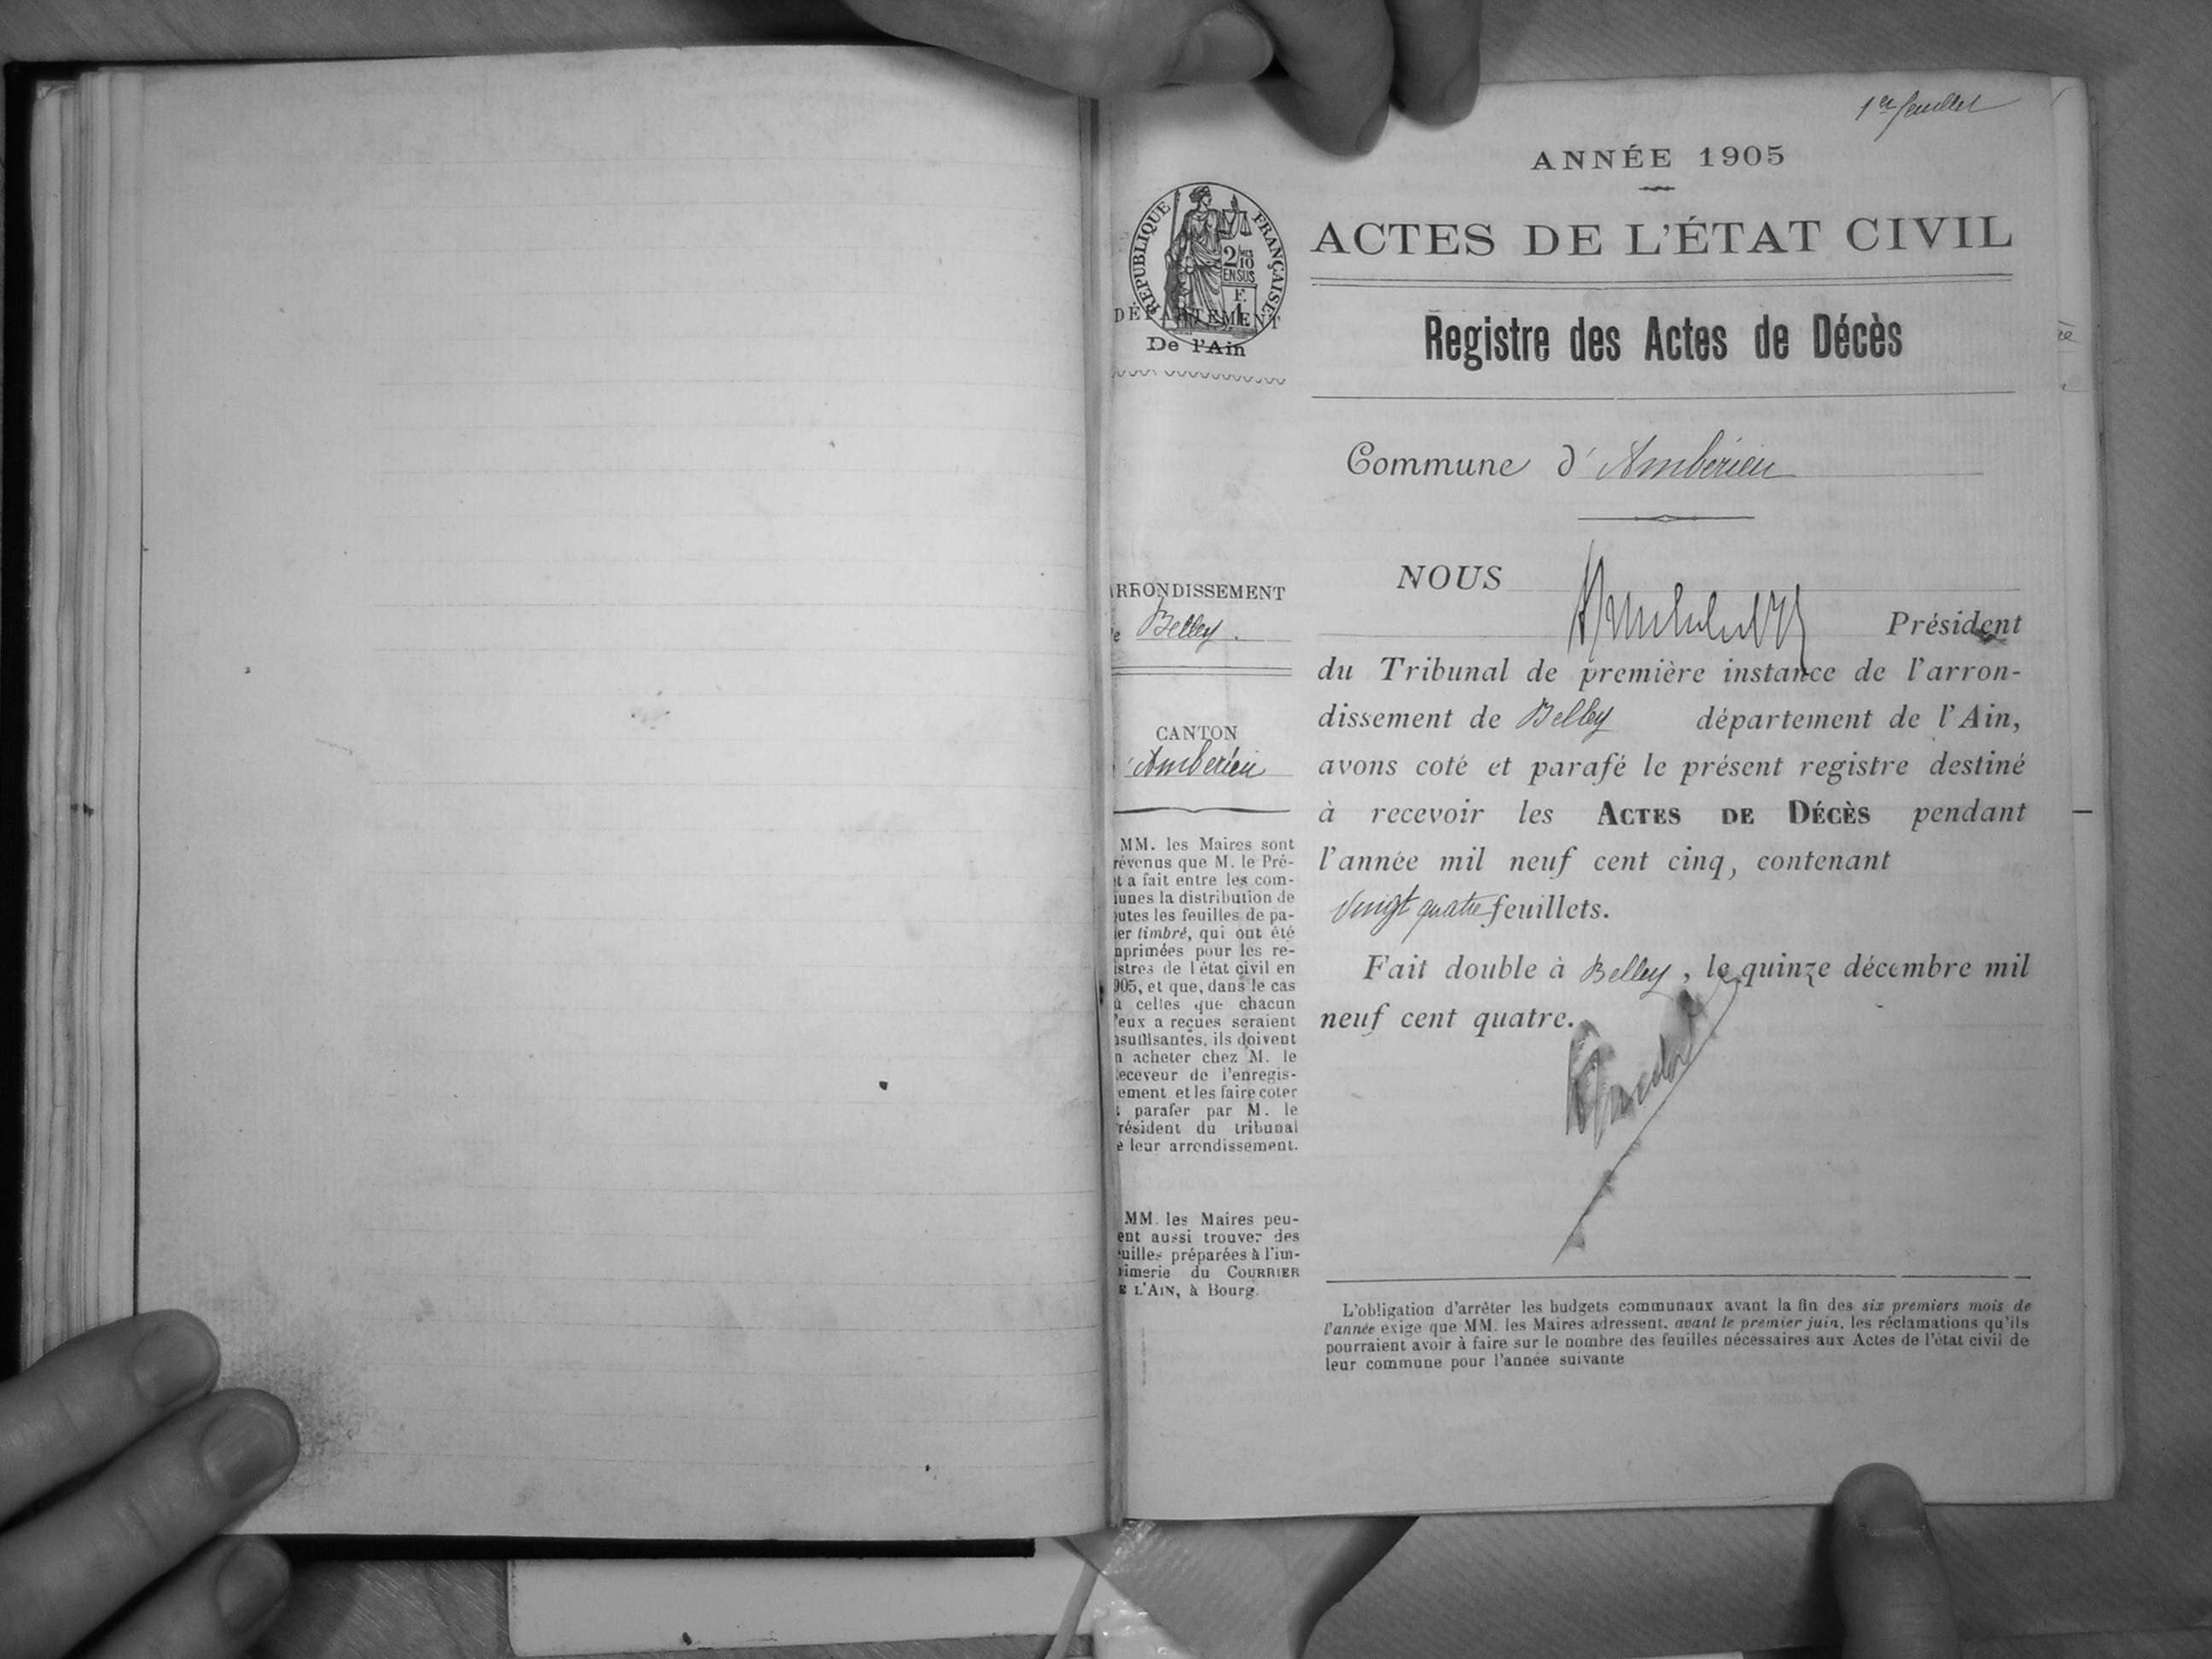 1er feuillet
ANNÉE 1905
ACTES DE L'ÉTAT CIVIL
Registre des Actes de Décès
Commune d'Ambérieu
RÉPUBLIQUE FRANÇAISE
2/10
EN SUS
F.
1
DÉPARTEMENT
De l'Ain
RRONDISSEMENT
e Belley.
CANTON
'Ambérieu
MM. les Maires sont
révenus que M. le Pré-
t a fait entre les com-
unes la distribution de
utes les feuilles de pa-
er timbré, qui ont été
primées pour les re-
istres de l'état civil en
905, et que, dans le cas
ù celles que chacun
'eux a reçues seraient
suffisantes, ils doivent
n acheter chez M. le
eceveur de l'enregis-
ement et les faire coter
t parafer par M. le
résident du tribunal
e leur arrondissement.
MM. les Maires peu-
ent aussi trouver des
uilles préparées à l'im-
rimerie du COURRIER
E L'AIN, à Bourg.
NOUS
Président
du Tribunal de première instance de l'arron-
dissement de Belley département de l'Ain,
avons coté et parafé le présent registre destiné
à recevoir les ACTES DE DÉCÈS pendant
l'année mil neuf cent cinq, contenant
vingt quatre feuillets.
Fait double à Belley, le quinze décembre mil
neuf cent quatre.
L'obligation d'arrêter les budgets communaux avant la fin des six premiers mois de
l'année exige que MM. les Maires adressent, avant le premier juin, les réclamations qu'ils
pourraient avoir à faire sur le nombre des feuilles nécessaires aux Actes de l'état civil de
leur commune pour l'année suivante